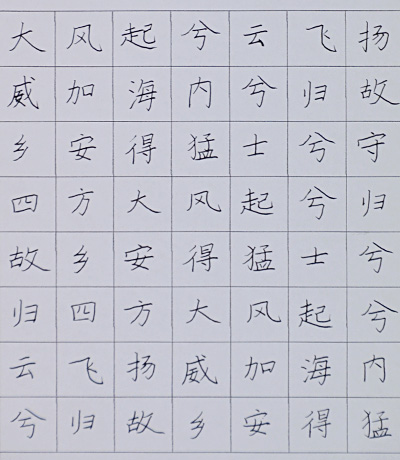 大风起兮云飞扬
威加海内兮归故
乡安得猛士兮守
四方大风起兮归
故乡安得猛士兮
归四方大风起兮
云飞扬威加海内
兮归故乡安得猛